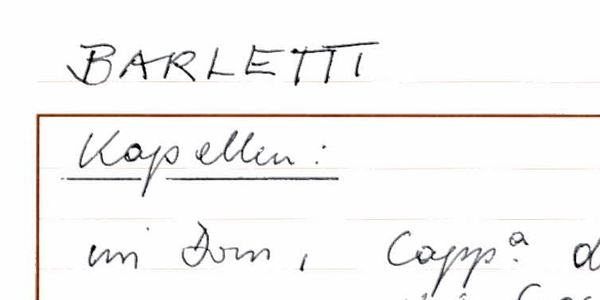 BARLETTI
Kapellen:
im Dom, Capp.a